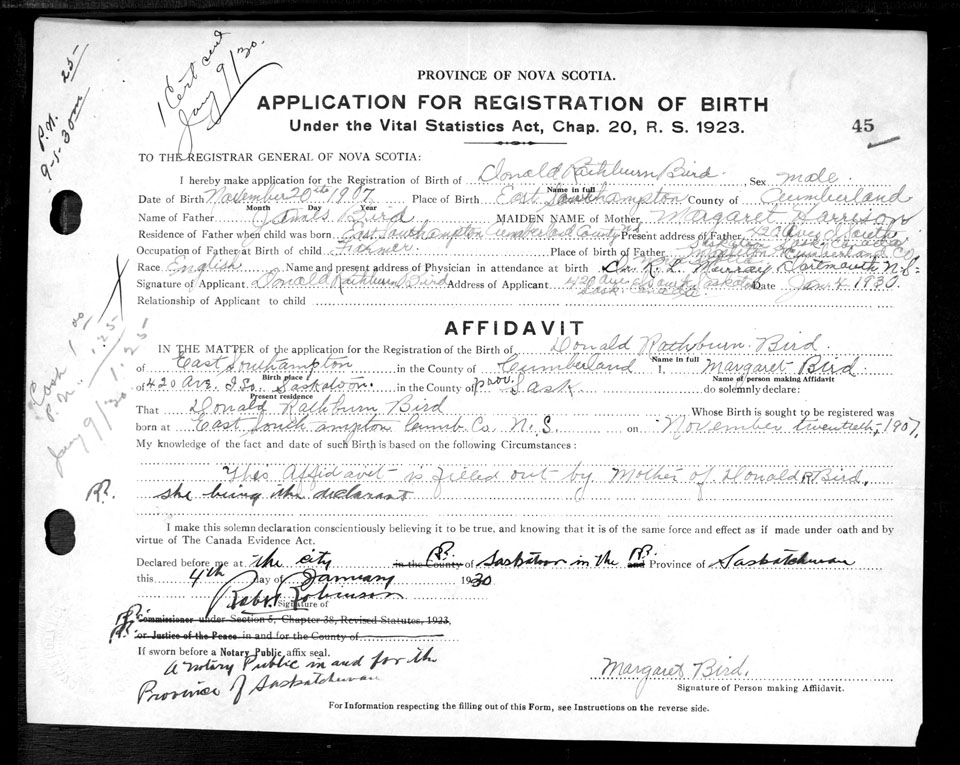 1 Cert sent
Jany 9/30.
P.N. 25-
9-1-30
PROVINCE OF NOVA SCOTIA.
APPLICATION FOR REGISTRATION OF BIRTH
Under the Vital Statistics Act, Chap. 20, R. S. 1923.
45
TO THE REGISTRAR GENERAL OF NOVA SCOTIA:
I hereby make application for the Registration of Birth of Donald Rathburn Bird Sex male
Name in full
Date of Birth November 20 1907 Place of Birth East Southampton County of Cumberland
Month Day Year
Name of Father James Bird MAIDEN NAME of Mother Margaret Harrison
Residence of Father when child was born East Southampton Cumberland County Present address of Father 420 Ave I South
Saskatoon Sask. Canada
Occupation of Father at Birth of child Farmer Place of birth of Father Cumberland Co
Race English Name and present address of Physician in attendance at birth Dr. Murray Dartmouth N.S.
Signature of Applicant Donald Rathburn Bird Address of Applicant 420 Ave I South Saskatoon Date Jan. 4 1930
Sask.
Relationship of Applicant to child
AFFIDAVIT
IN THE MATTER of the application for the Registration of the Birth of Donald Rathburn Bird
Name in full
of East Southampton in the County of Cumberland I, Margaret Bird
Birth place Name of person making Affidavit
of 420 Ave. I So. Saskatoon in the County of prov. Sask do solemnly declare:
Present residence
That Donald Rathburn Bird Whose Birth is sought to be registered was
born at East Southampton Cumb. Co. N.S. on November twentieth, 1907.
My knowledge of the fact and date of such Birth is based on the following Circumstances:
This Affidavit is filled out by Mother of Donald R Bird,
she being the declarant
R.R.
Cash 1.00
P.N. 1.25
Jany 9/30 1.25
I make this solemn declaration conscientiously believing it to be true, and knowing that it is of the same force and effect as if made under oath and by
virtue of The Canada Evidence Act.
Declared before me at the city in the County of R.R. Saskatoon in the and R.R. Province of Saskatchewan
this 4th day of January 1930
Robt Robinson
Signature of
R.R. Commissioner under Section 5, Chapter 38, Revised Statutes, 1923,
R.R. or Justice of the Peace in and for the County of
If sworn before a Notary Public affix seal.
A Notary Public in and for the
Province of Saskatchewan
Margaret Bird.
Signature of Person making Affidavit.
For Information respecting the filling out of this Form, see Instructions on the reverse side.